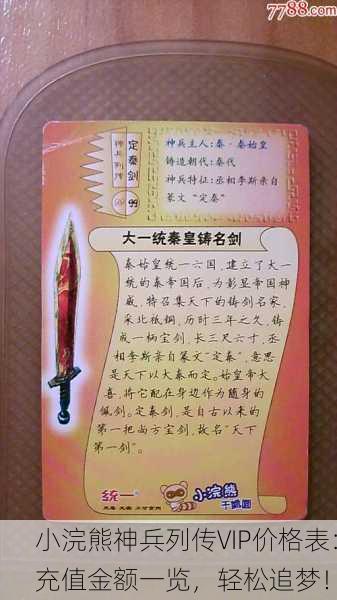 7788.com
定秦剑
神兵列传
99
神兵主人:秦·秦始皇
铸造朝代:秦代
神兵特征:丞相李斯亲自
篆文“定秦”
大一统秦皇铸名剑
秦始皇统一六国,建立了大一
统的秦帝国后,为彰显帝国神
威,特召集天下的铸剑名家,
采北祗铜,历时三年之久,铸
成一柄宝剑,长三尺六寸,丞
相李斯亲自篆文“定秦”,意思
是天下以大秦而定。始皇帝大
喜,将它配在身边作为随身的
佩剑。定秦剑,是自古以来的
第一把尚方宝剑,故名“天下
第一剑”。
统一
小浣熊
干脆面
小浣熊神兵列传VIP价格表:
充值金额一览,轻松追梦!